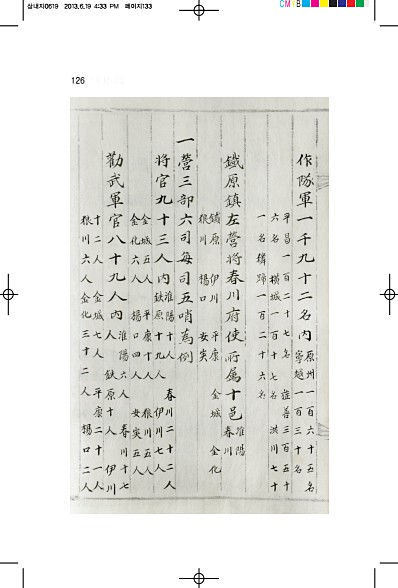 삼내지0619 2013.6.19 4:33 PM 페이지133
CMYB
126
作隊軍一千九十二名內 原州一百六十五名
寧越一百三十名
平昌一百二十七名 旌善三百五十
六名 橫城一百十七名 洪川七十
一名 麟蹄一百二十六名
鐵原鎭左營將春川府使所属十邑 淮陽
春川
鐵原 伊川 平康 金城 金化
狼川 楊口
一營三部六司每司五哨爲例
將官九十三人內 淮陽十人 春川二十二人
鉄原十九人 伊川七人
金城五人 平康十人 狼川五人
金化六人 楊口四人 五人
勸武軍官八十九人內 淮陽六人 春川十七
人 鉄原十人 伊川
十二人 金城七人 平康二十一人
狼川六人 金化三十二人 楊口二人